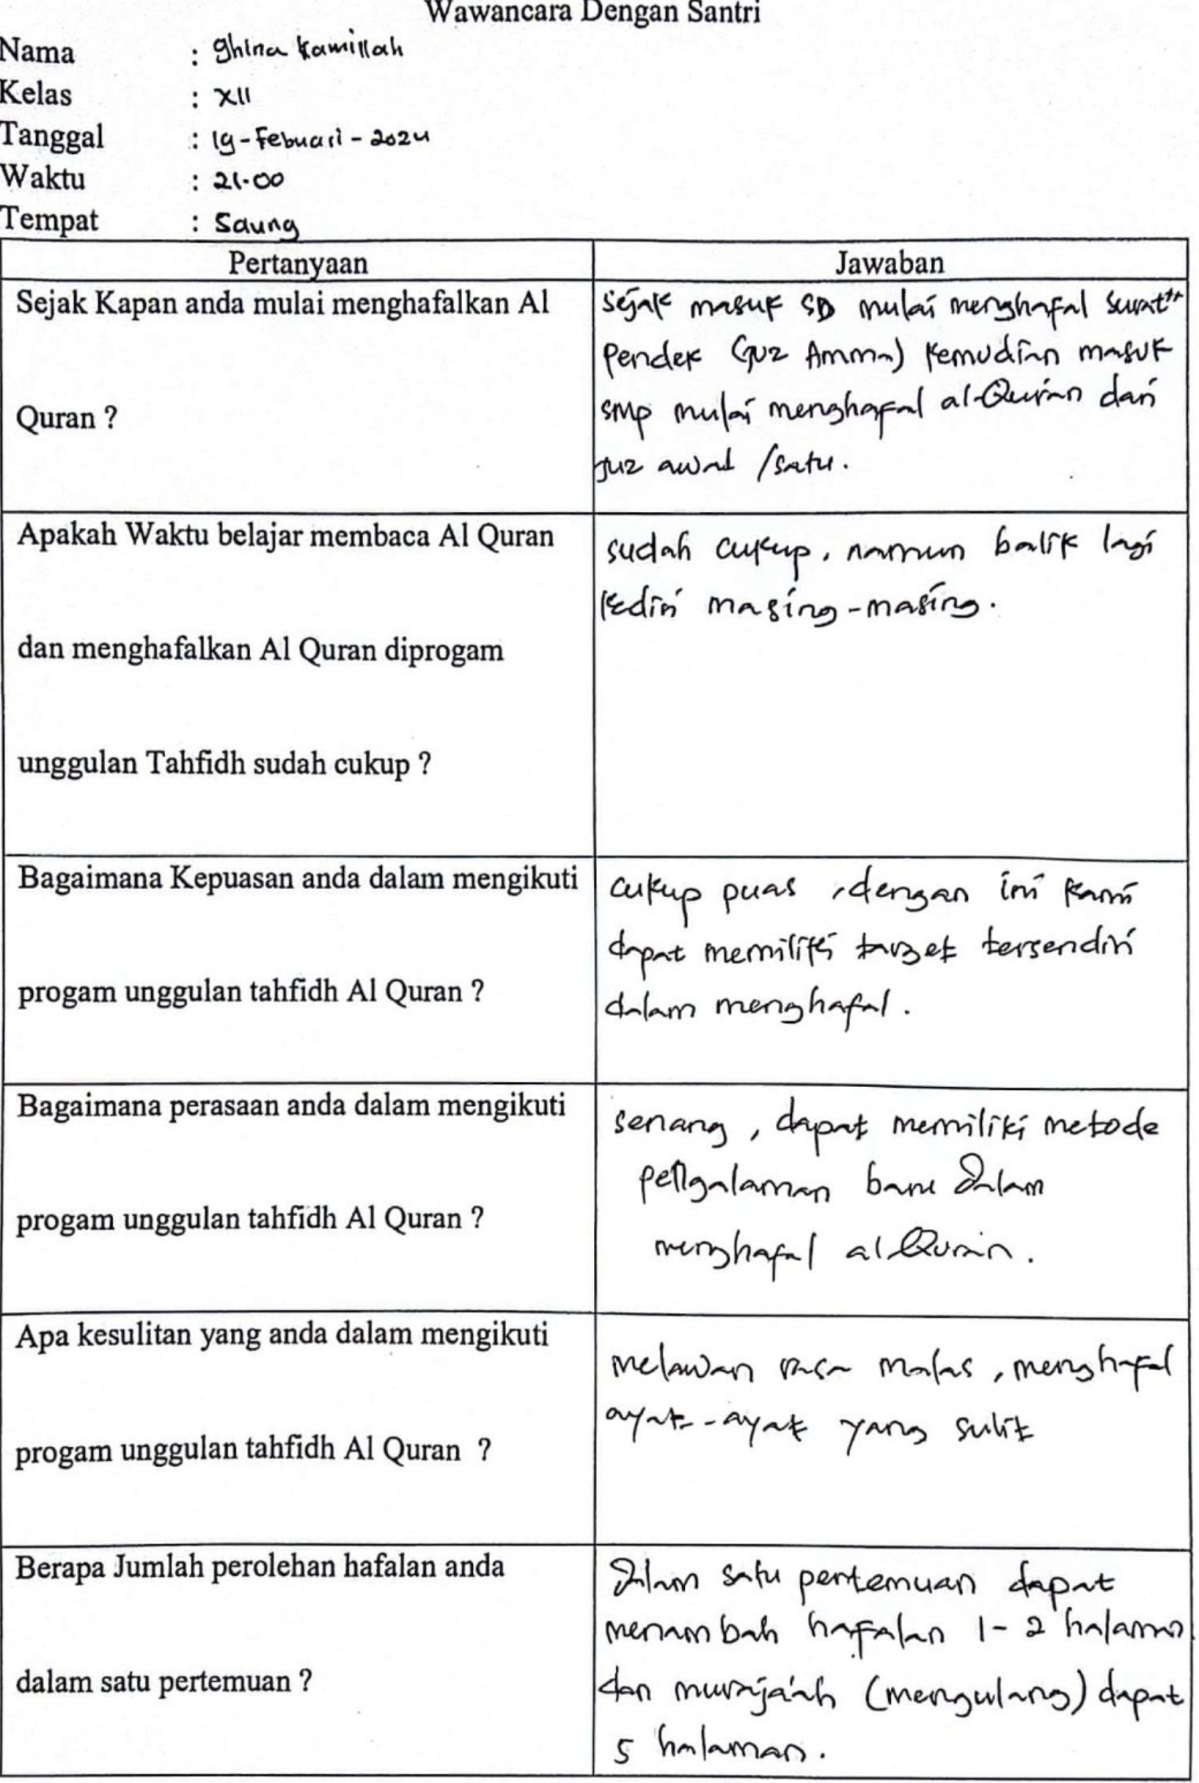 Wawancara Dengan Santri
Nama : Ghina Kamillah
Kelas : XII
Tanggal : 19-Febuari-2024
Waktu : 21.00
Tempat : Saung
Pertanyaan
Jawaban
Sejak Kapan anda mulai menghafalkan Al
Quran ?
Sejak masuk SD mulai menghafal surat"
Pendek (juz Amma) kemudian masuk
SMP mulai menghafal al-Qur'an dari
juz awal /satu.
Apakah Waktu belajar membaca Al Quran
dan menghafalkan Al Quran diprogam
unggulan Tahfidh sudah cukup ?
sudah cukup, namun balik lagi
kediri masing-masing.
Bagaimana Kepuasan anda dalam mengikuti
progam unggulan tahfidh Al Quran ?
cukup puas, dengan ini kami
dapat memiliki target tersendiri
dalam menghafal.
Bagaimana perasaan anda dalam mengikuti
progam unggulan tahfidh Al Quran ?
senang, dapat memiliki metode
pengalaman baru dalam
menghafal al Qur'an.
Apa kesulitan yang anda dalam mengikuti
progam unggulan tahfidh Al Quran ?
Melawan rasa malas, menghafal
ayat-ayat yang sulit
Berapa Jumlah perolehan hafalan anda
dalam satu pertemuan ?
Dalam satu pertemuan dapat
menambah hafalan 1-2 halaman
dan muraja'ah (mengulang) dapat
5 halaman.